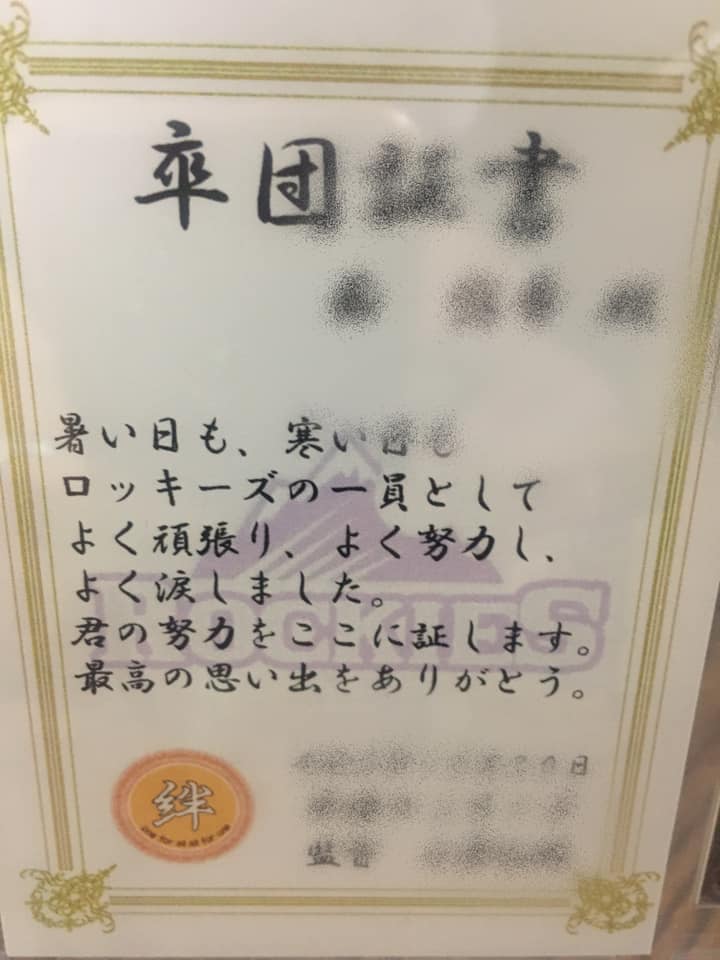 卒団証書
暑い日も、寒い日も
ロッキーズの一員として
よく頑張り、よく努力し、
よく涙しました。
君の努力をここに証します。
最高の思い出をありがとう。
ROCKIES
絆
one for all all for one
日
監督